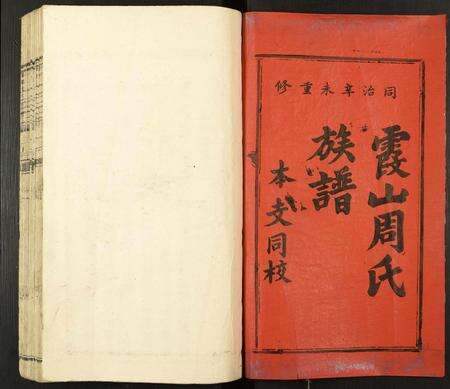 同治辛未重修
霞山周氏
族譜
本支同校